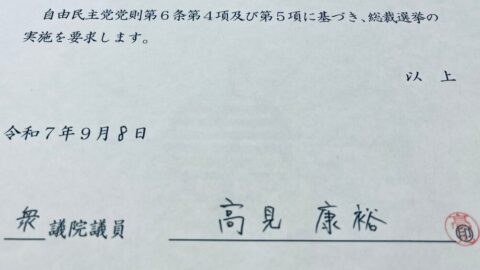 自由民主党党則第6条第4項及び第5項に基づき、総裁選挙の
実施を要求します。
以上
令和7年9月8日
衆議院議員 高見 康裕 印